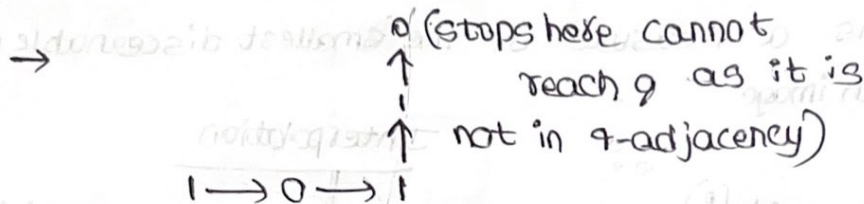 → 0 (stops here cannot
↑ reach q as it is
1
↑ not in 4-adjacency)
1 → 0 → 1